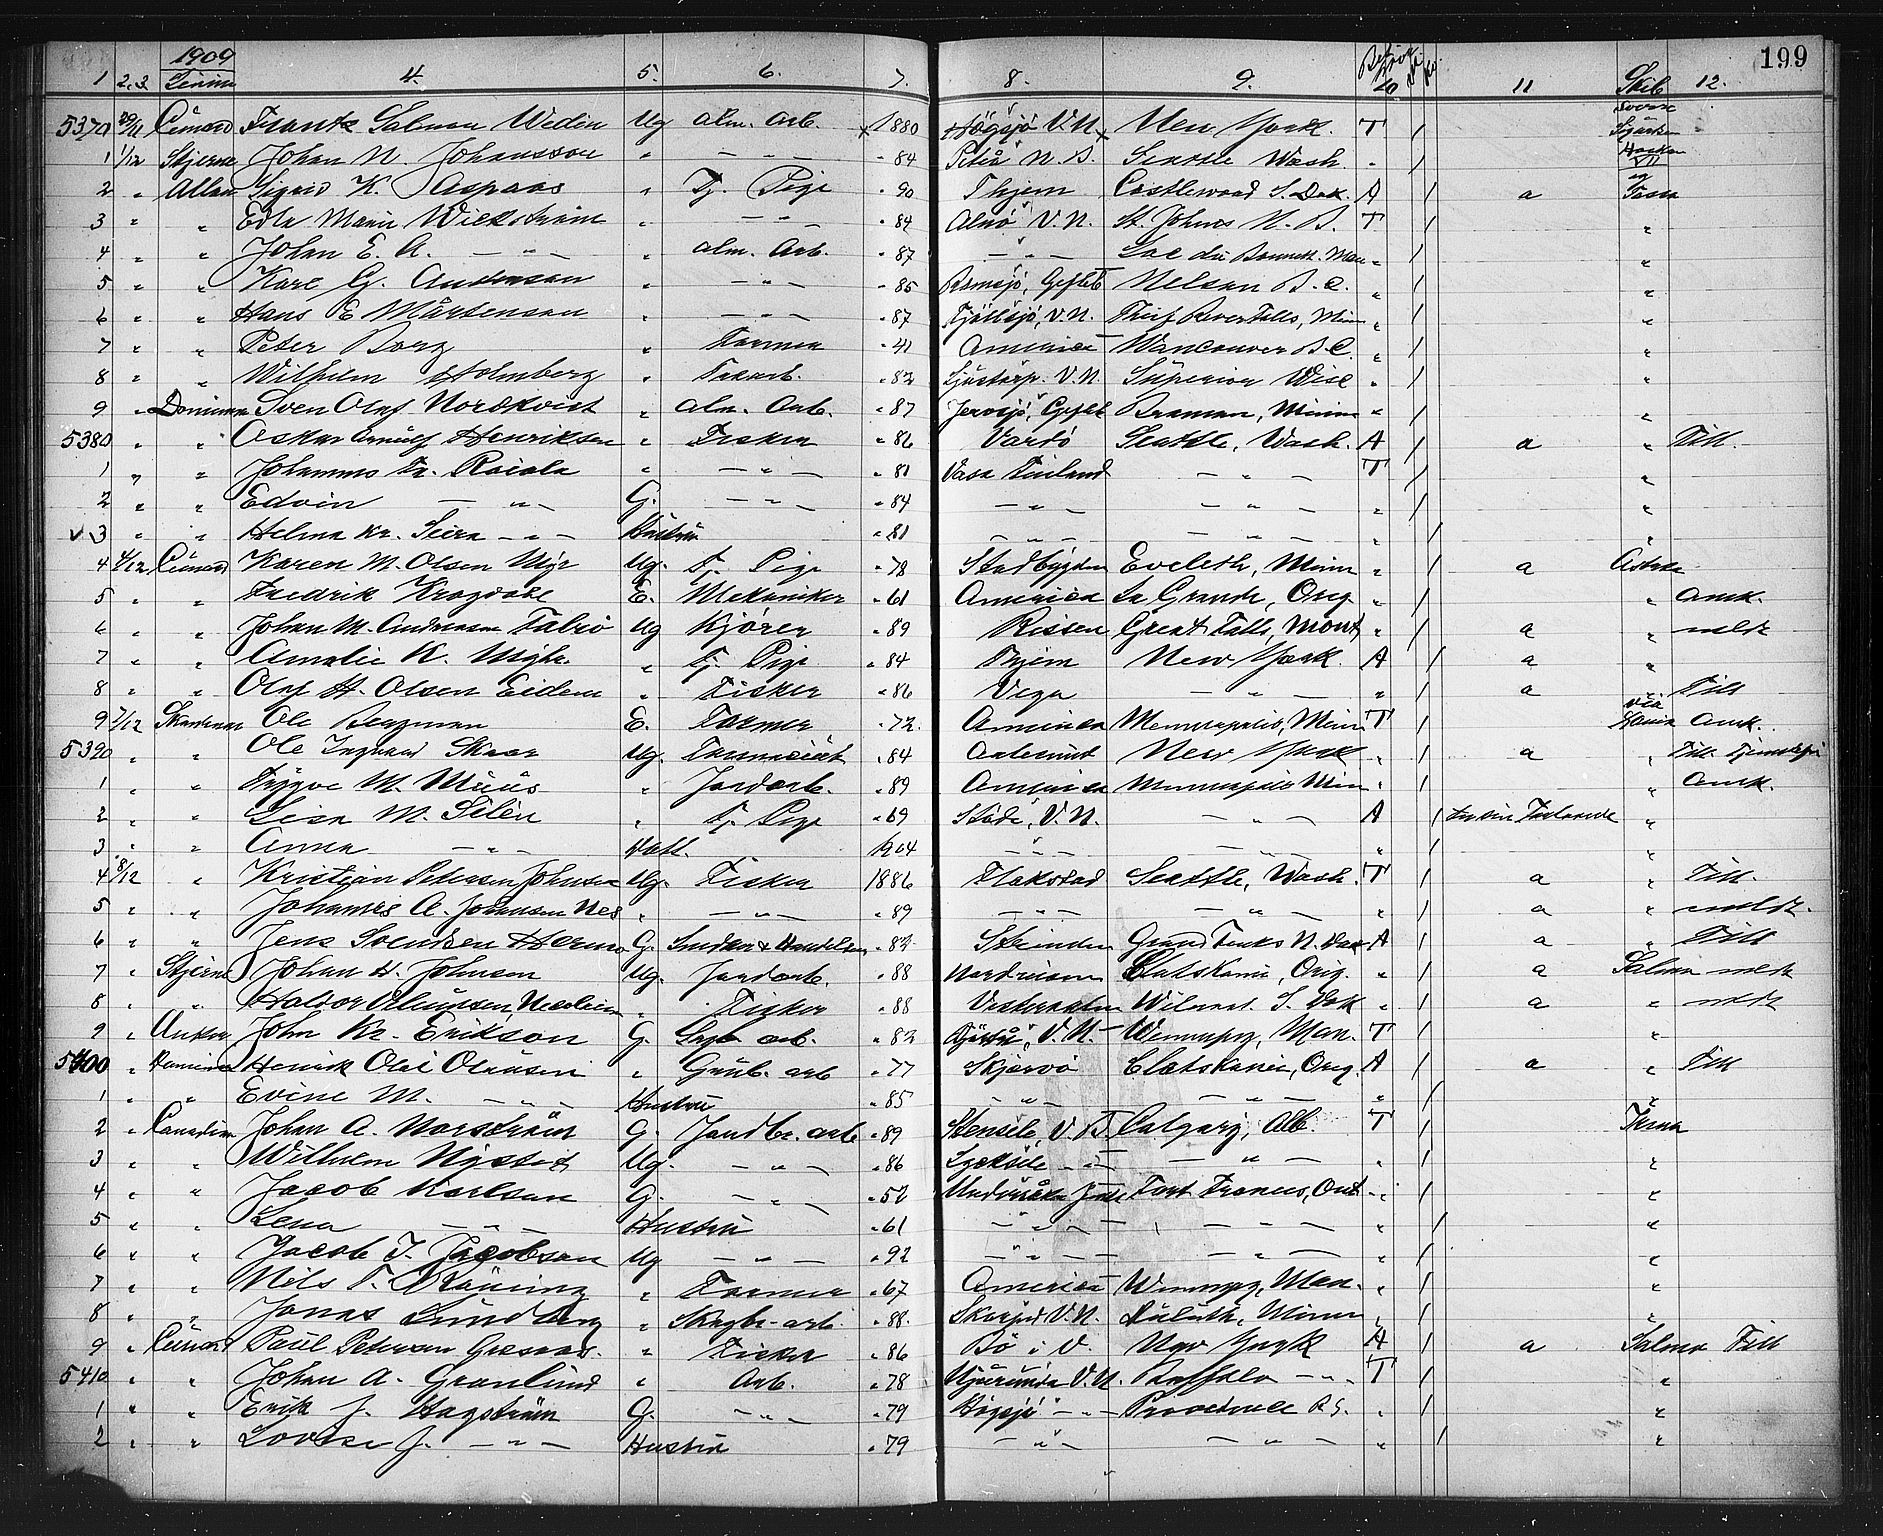 199
1909 Skib
1 2.3 Linien 4. 5. 6. 7. 8. 9. 10 11 12.
5370 29/11 Cunard Frants Salmon Wedin Ug alm. Arb. 1880 Högsjö V.N. New York. T /
1 1/12 Stjerne Johan N. Johansson " — " — " 84 Piteå N.B. Seattle Wash. " /
2 " Allan Sigrid K. Aspaas " Tj. Pige " 90 Thjem Castlewood S. Dak. A / a Tasso
3 " " Edla Maria Wickström " — " — " 84 Alnö V.N. St. Johns N. B. T / "
4 " " Johan E. A. — " — " alm. Arb. " 87 — " — Lac du Bonnett. Man " / "
5 " " Karl G. Anderson " — " — " 85 Gefleb Nelson B.C. " / "
6 " " Hans E Mårtenson " — " — " 87 Fjällsjö, V.N. Thief River Falls, Minn " / "
7 " " Peter Borg " Farmer " 41 America Wancouver B.C. " / "
8 " " Wilhelm Holmberg " " 82 V.N. Superior Wisc " / "
9 " Dominion Sven Olof Nordkvist " alm. Arb. " 87 Jervsjö, Gefleb Minn " / "
5380 " " Oskar Arnulf Henriksen " Fisker " 86 Vardö Seattle, Wash. A / a " Till.
1 " " Johannes Fr. Raiala " — " — " 81 Vasa Finland — " — T / "
2 " " Edvin — " — G. — " — " 84 — " — — " — " / "
3 " " Helma Kr. Seira — " — Hustru " 81 — " — — " — " / "
4 4/12 Cunard Karen M. Olsen Myr Ug. Tj. Pige " 78 Stadbygden Eveleth, Minn " / a Astræa
5 " " Fredrik Krogdahl E. Mekaniker " 61 America La Grande, Oreg. " / " Amk.
6 " " Johan M. Andreasen Fabro Ug Kjörer " 89 Rissen Great Falls, Mont, " / a " meldt
7 " " Amalie K. Myhr. " Tj. Pige " 84 Thjem New York. A / a "
8 " " Olaf H. Olsen Eidem " Fisker " 86 Vega — " — " / a " Till
9 7/12 Skandenav Ole Bergman E. Farmer " 72. America Menneapolis, Minn T / Amk.
5390 " " Ole Ingvald Skaar Ug. Farmaceut " 84 Aalesund New York " / a " Till.
1 " " Trygve M. Muus " Jordarb. " 89 America Minneapolis Minn " / " Amk.
2 " " Lisa M. Silén " Tj. Pige " 69 Stöde, V.N. — " — A / "
3 " " Anna — " — Datt. 1904 — " — — " — " / "
4 8/12 " Kristian Petersen Johnsen Ug. Fisker 1886 Flakstad Seattle, Wash. T / a " Till.
5 " " Johannes A. Johansen Nes " — " — " 89 — " — — " — " / a " meldt.
6 " " Jens Svendsen G. " 82 Strinden Grand Forks N. Dak A / a " Till
7 " Stjerne Johan H. Johnson Ug. Jordarb. " 88 Clatskanie, Oreg. " / a Salmo meldt
8 " " " Fisker " 88 Wilmot. S. Dak " / a " meldt
9 " Anker John Kr. Erikson G. arb. " 82 V.N. Winnipeg, Man. T / "
5400 " Dominion Henrik Olai Olausen " Grub. arb " 77 Skjervö Clatskanie, Oreg. A / a " Till
1 " " Evine M. — " — Hustru " 85 — " — — " — " / "
2 " Canadian Johan A. Norström G. Jordbr. arb " 89 Stensele, V.B. Calgary, Alb. T /
3 " " Wilhelm Nysted Ug. — " — " 86 Lycksele — " — — " — " / "
4 " " Jacob Karlson G. — " — " 52 Undersåker Fort Frances, Ont " / "
5 " " Lena — " — Hustru " 61 — " — — " — " / "
6 " " Jacob J. Jacobson Ug — " — " 92 — " — — " — " / "
7 " " Nils T. Köning " Farmer " 67 America Winnipeg, Man. " / "
8 " " Jonas Lundberg " " 88. V.N. Duluth, Minn " / "
9 " Cunard Paul Petersen " Fisker " 86 Bö i V. New York A / a Salmo Till
5410 " " Johan A. Granlund " Arb. " 78 Njurunda V.N. Buffalo — " — T / "
1 " " Erik J. Hagström G. — " — " 79 Högsjö — " — Providence R.I. " / "
2 " " Lovise J. — " — Hustru " 79 — " — — " — " / "